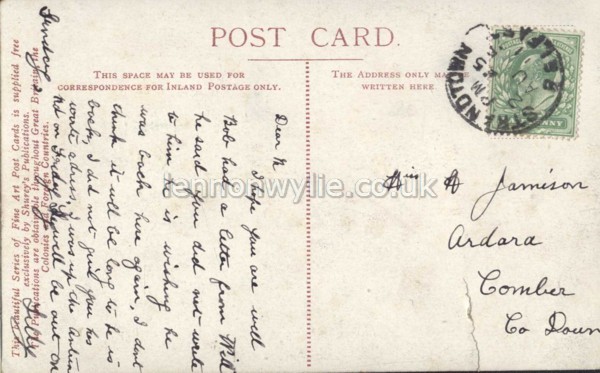 POST CARD.
THIS SPACE MAY BE USED FOR
CORRESPONDENCE FOR INLAND POSTAGE ONLY.
THE ADDRESS ONLY MAY BE
WRITTEN HERE.
This Beautiful Series of Fine Art Post Cards is supplied free
exclusively by Shurey's Publications.
The Publications are obtainable throughout Great Britain, the
Colonies and Foreign Countries.
Dear N
I hope you are well
Bob had a letter from Will
he said you did not write
to him he is wishing he
was back here again, I dont
think it will be long to he is
back, I did not give you his
I was up the
will be out on
Jamison
Ardara
Comber
Co Down
STRANDTOWN
BELFAST
PM
5
lennonwylie.co.uk